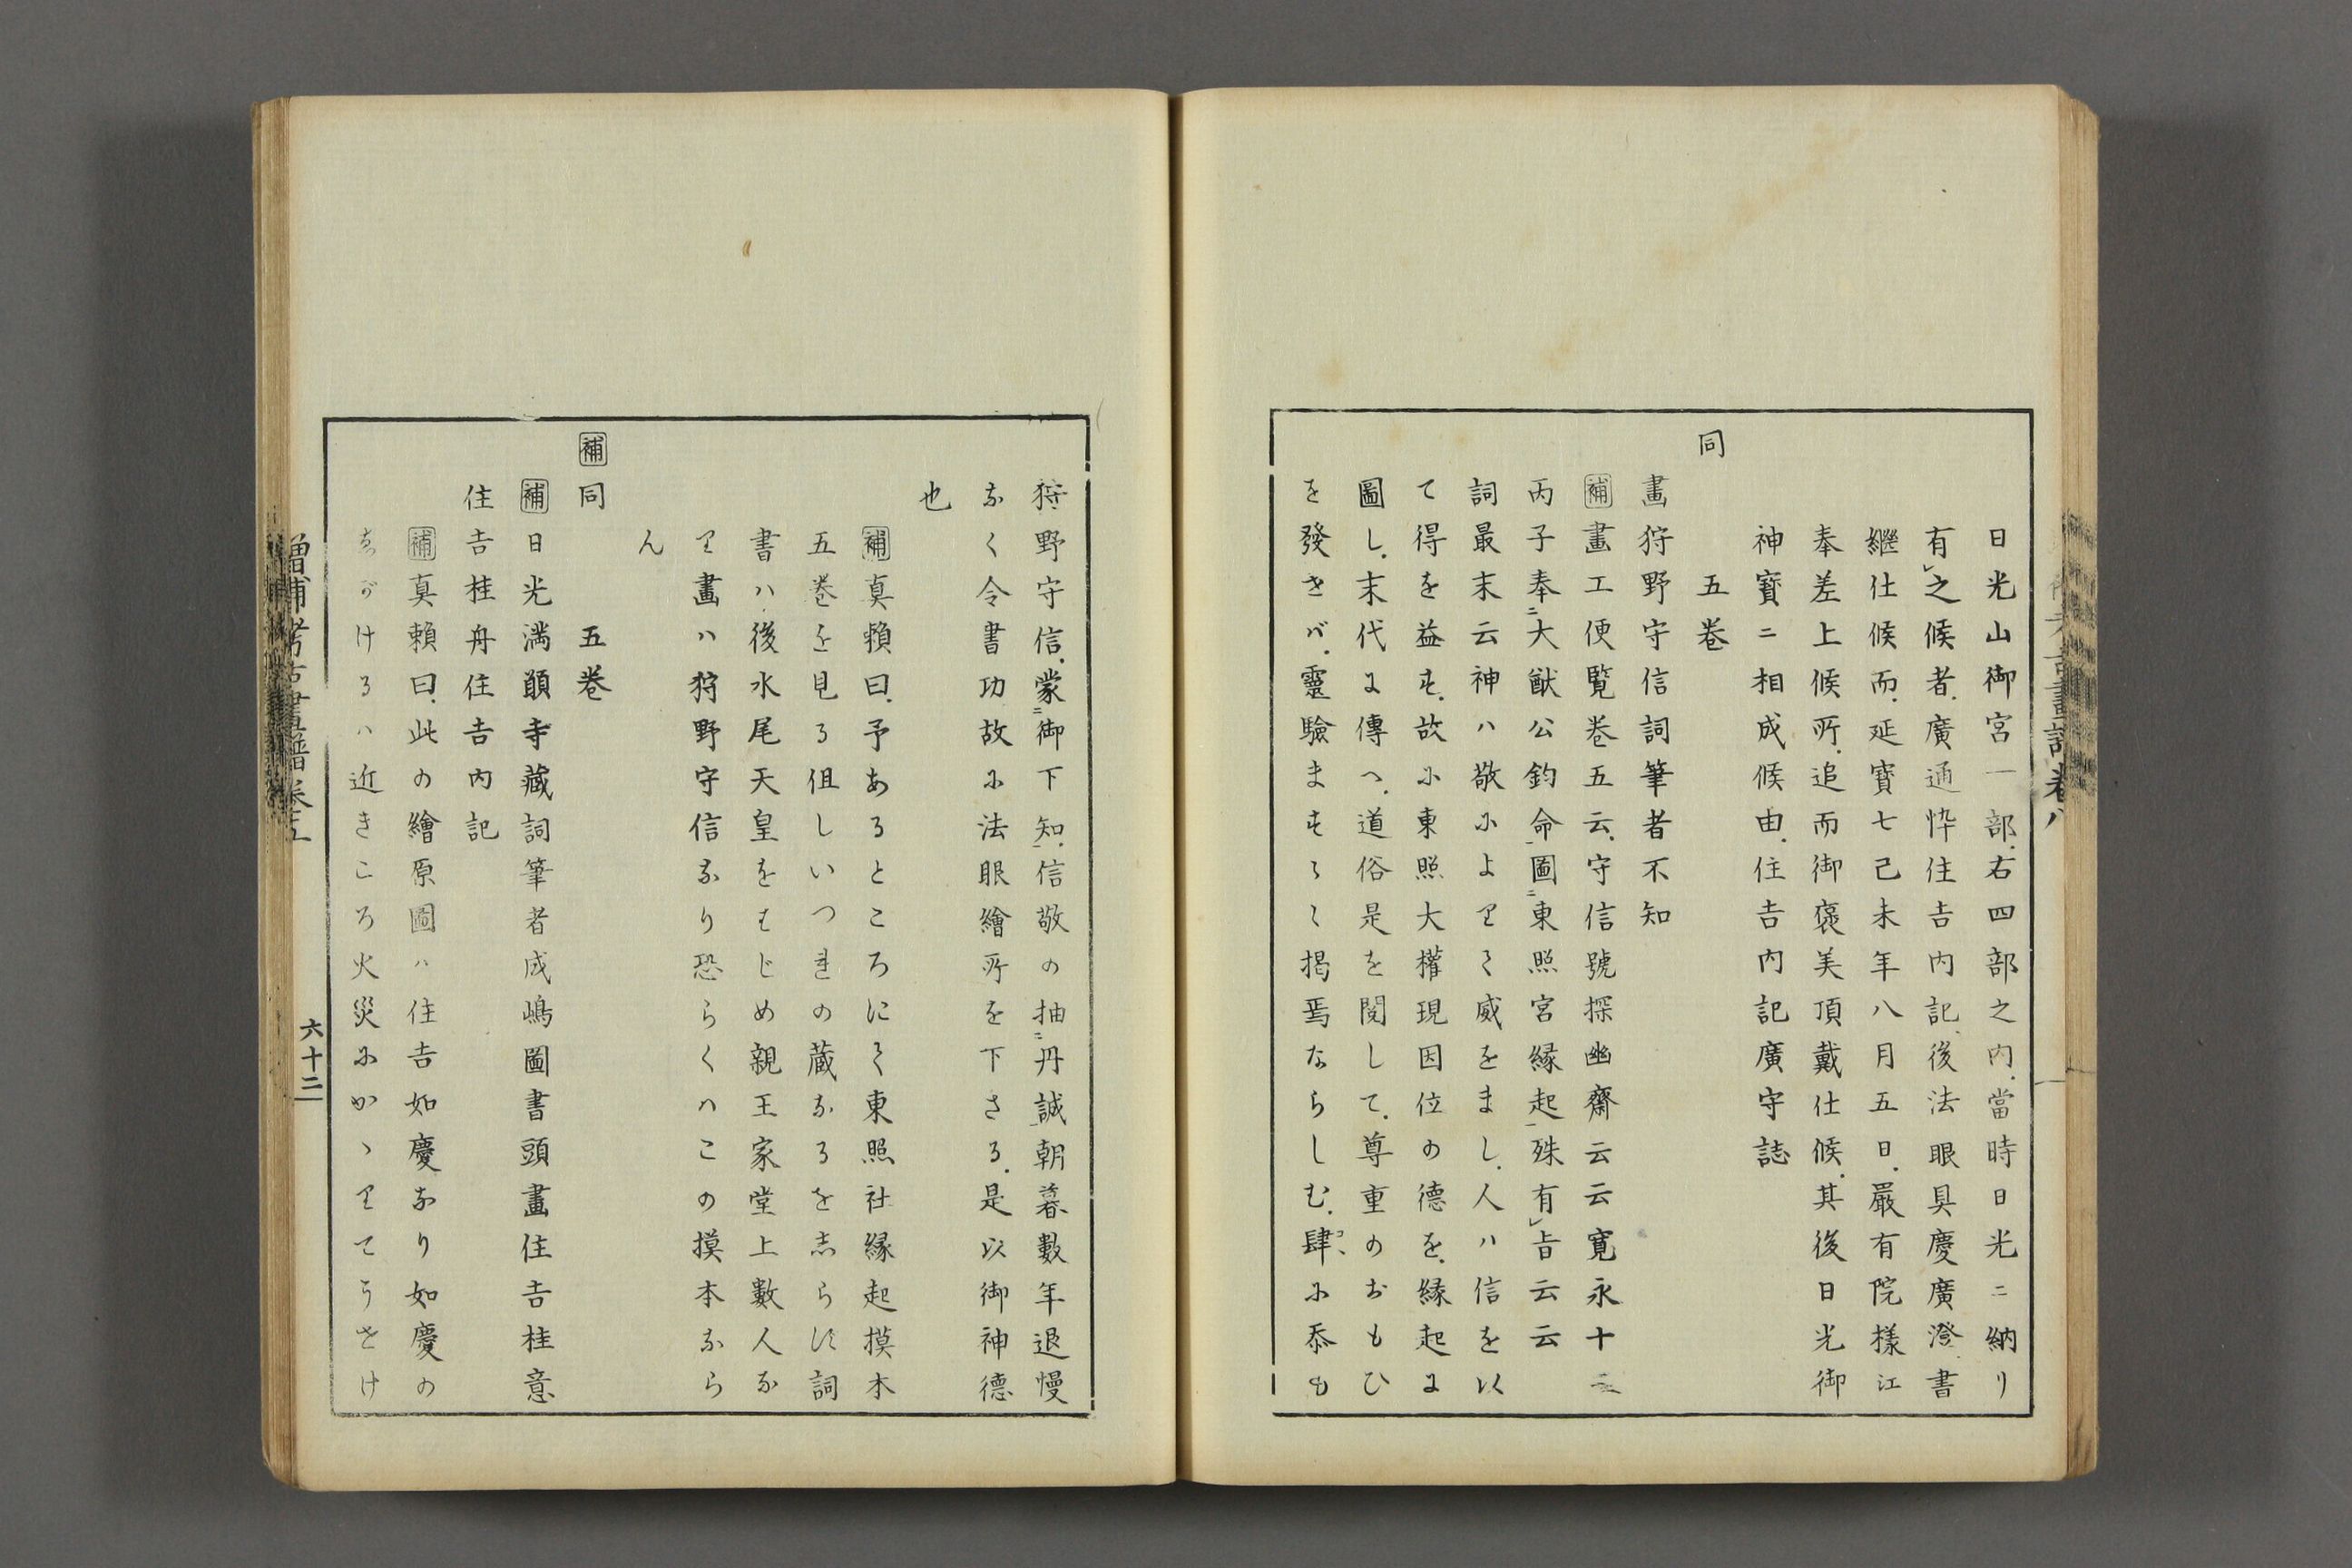 日光山御宮一部.右四部之内.當時日光ニ納リ
有レ之候者.廣通忰住吉内記.後法眼具慶廣澄.書
繼仕候而.延寶七己未年八月五日.嚴有院様江
奉差上候所.追而御褒美頂戴仕候.其後日光御
神寶ニ相成候由.住吉内記廣守誌
同　五巻
畫狩野守信詞筆者不知
補畫工便覧巻五云.守信號探幽齋云云寛永十三
丙子奉二大猷公鈞命一圖二東照宮縁起一殊有レ旨云云
詞最末云神ハ敬によりて威をまし.人ハ信を以
て得を益す.故に東照大權現因位の德を.縁起に
圖し.末代に傳へ.道俗是を閲して.尊重のおもひ
を發きバ.靈驗ますく掲焉ならしむ.肆コヽに忝も
狩野守信.蒙二御下知一.信敬の抽二丹誠一朝暮數年退慢
なく令書功故に法眼繪所を下さる.是以御神德
也
補真頼曰.予あるところにて東照社縁起摸本
五巻を見る但しいつれの蔵なるを志らす詞
書ハ.後水尾天皇をはじめ親王家堂上數人な
り畫ハ狩野守信なり恐らくハこの摸本なら
ん
補同　五巻
補日光満願寺藏詞筆者成嶋圖書頭畫住吉桂意
住吉桂舟住吉内記
補真頼曰.此の繪原圖ハ住吉如慶なり如慶の
ゑがけるハ近きころ火災にかヽりてうせけ
増補考古畫譜巻五
六十二